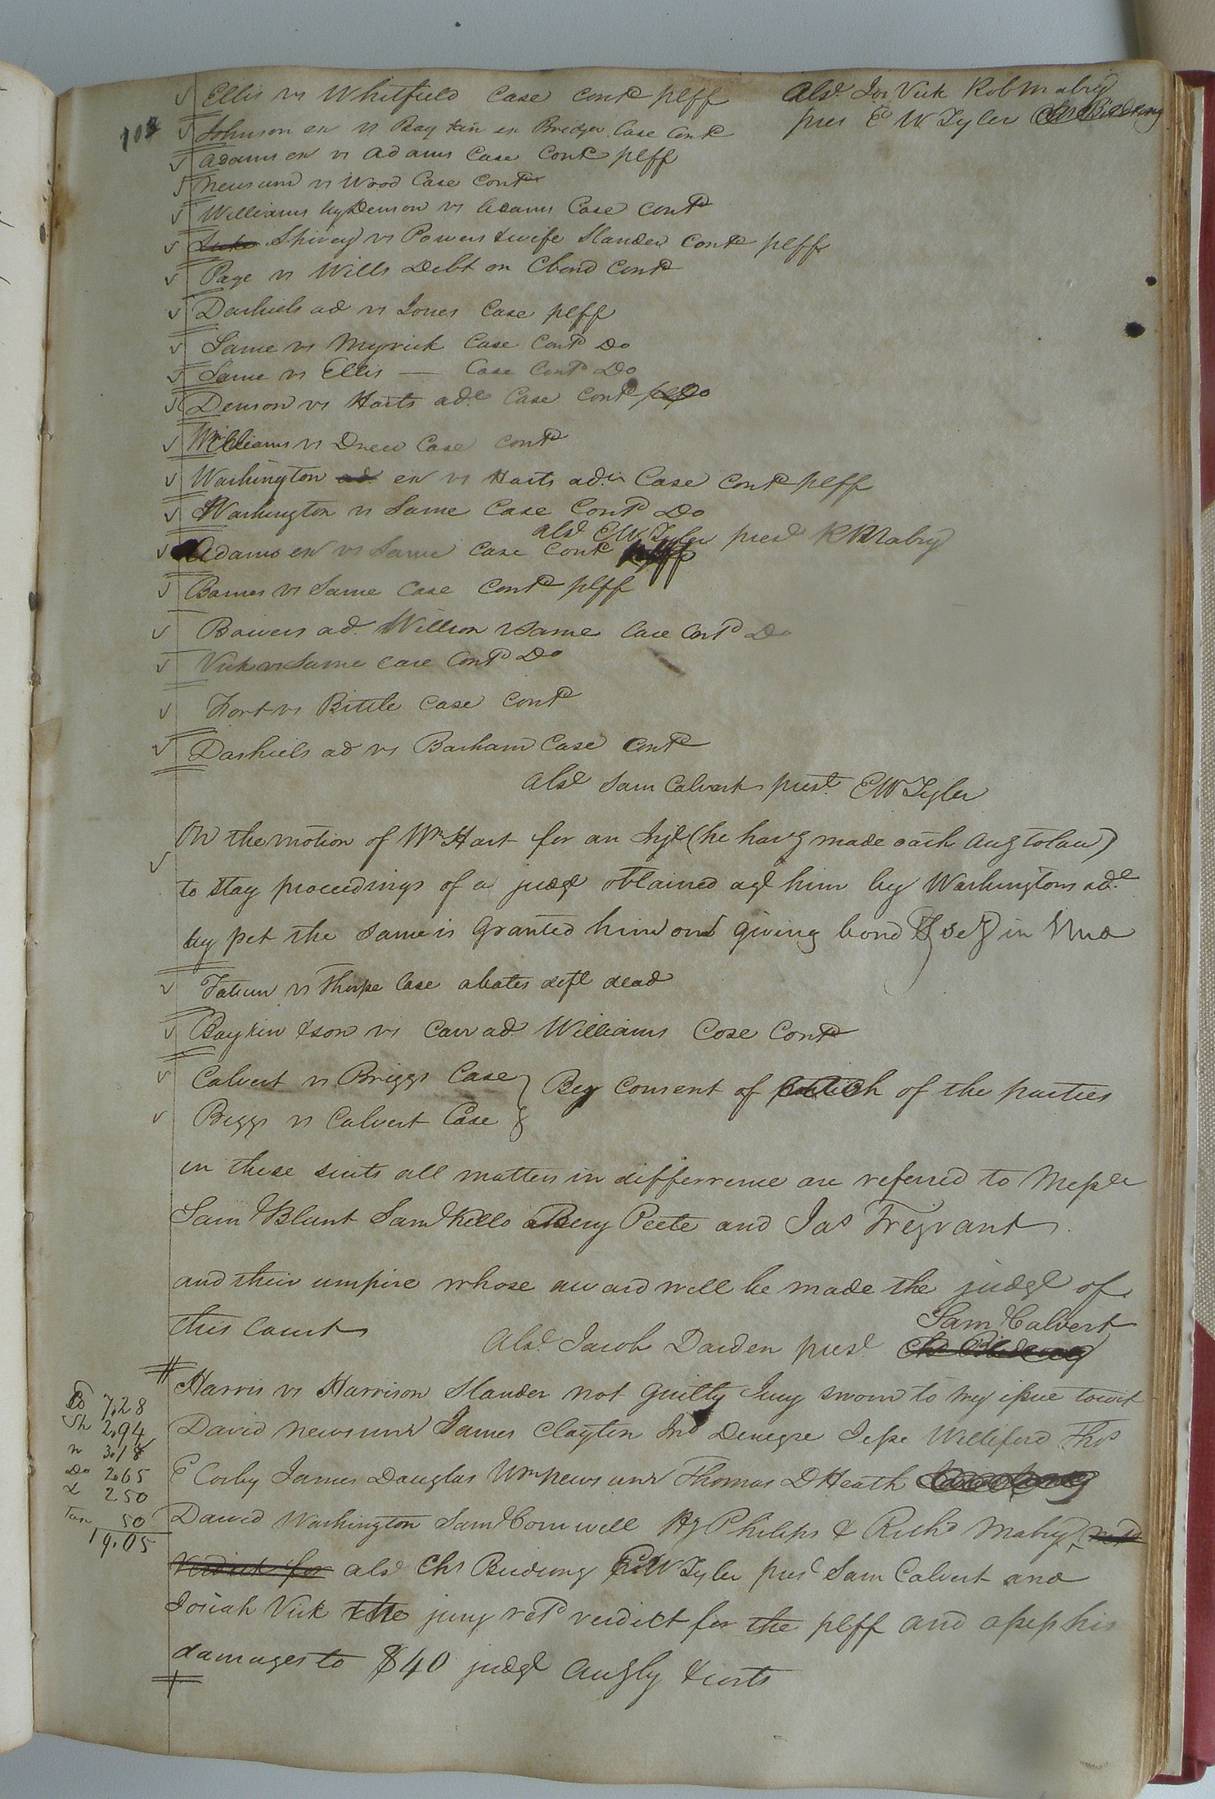 Ellis vs Whitfield Case Contd plff Absd Jos Vick Rob Mabry
pres E W Tyler
103
Johnson ex vs Baykin ex Bridger Case Contd
Adams ex vs Adams Case Contd plff
Newsum vs Wood Case Contd
Williams by Denson vs Adams Case Contd
Shivey vs Powers & wife Slander Contd plff
Page vs Wills Debt on Cbond Contd
Dashiels ad vs Jones Case plff
Same vs Myrick Case Contd Do
Same vs Ellis — Case Contd Do
Denson vs Harts adr Case Contd Do
Williams vs Drew Case Contd
Washington ad ex vs Harts adr Case Contd plff
Washington vs Same Case Contd Do
absd E W Tyler presd R Mabry
Adams ex vs Same Case Contd plff
Barnes vs Same Case Contd plff
Bowers ad Willson vs Same Case Contd Do
Vick vs Same Case Contd Do
Fort vs Bittle Case Contd
Dashiels ad vs Barham Case Contd
Absd Sam Calvert prest E W Tyler
On the motion of Wm Hart for an Injt (he havg made oath accg to law)
to stay proceedings of a judgt obtained agt him by Washingtons adr
by pet the same is granted him on giving bond & secy in
Tatum vs Thorpe Case abates deft dead
Baykin & son vs Carr ad Williams Case Contd
Calvert vs Briggs Case } By Consent of of the parties
Briggs vs Calvert Case }
in these suits all matters in difference are referred to Messrs
Saml Blunt Saml Kello Beny Peete and Jas Trezvant
and their umpire whose award will be made the judgt of
this Court Absd Jacob Darden presd Saml Calvert
Harris vs Harrison Slander not guilty Jury sworn to try issue towit
David Newsum James Clayton Jno Denegre Jesse Williford Thos
C Corby James Douglas Wm Newsum Thomas D Heath
David Washington Saml Cornwell Hy Philips & Richd Mabry
Verdict for absd Chs Birdsong & E W Tyler presd Sam Calvert and
Josiah Vick the jury retd verdict for the plff and assess his
damages to $40 judgt accgly & costs
Do 7.28
Sh 2.94
w 3.18
Do 2.65
2 50
Tax 50
19.05